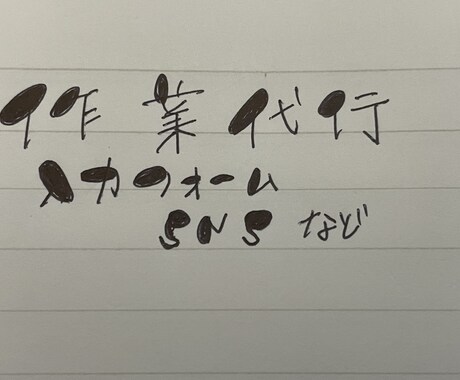 作業代行
入力フォーム
SNS など